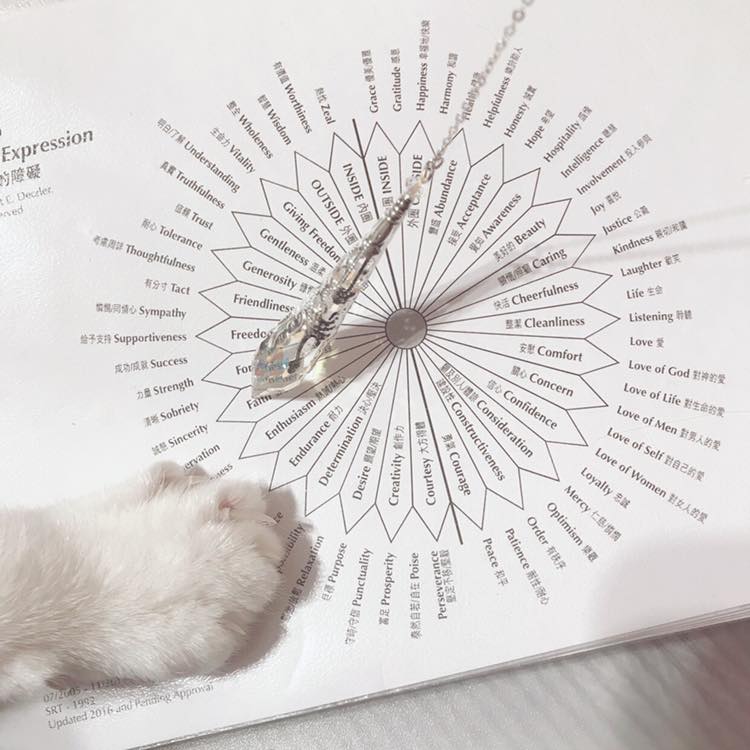 Expression
的障礙
t E. Deczler,
有價值 Worthiness
熱忱 Zeal
Grace 優美/優雅
Gratitude 感恩
Happiness 幸福地/快樂
Harmony 和諧
Helpfulness 樂於助人
Honesty 誠實
Hope 希望
Hospitality
Intelligence 聰慧
Involvement 投入參與
Joy 喜悅
Justice 公義
Kindness
Laughter 歡笑
Life 生命
Listening 聆聽
Love 愛
Love of God 對神的愛
Love of Life 對生命的愛
Love of Men 對男人的愛
Love of Self 對自己的愛
Love of Women 對女人的愛
Loyalty 忠誠
Mercy
Optimism 樂觀
Order 有秩序
Patience 耐性/耐心
Peace 和平
Perseverance
堅定不移/堅毅
泰然自若/自在 Poise
富足 Prosperity
守時/守信 Punctuality
目標 Purpose
Relaxation
誠懇 Sincerity
清晰 Sobriety
力量 Strength
成功/成就 Success
給予支持 Supportiveness
憐憫/同情心 Sympathy
有分寸 Tact
考慮周詳 Thoughtfulness
耐心 Tolerance
信賴 Trust
真實 Truthfulness
明白/了解 Understanding
生命力 Vitality
整全 Wholeness
智慧 Wisdom
INSIDE
INSIDE 外圈
OUTSIDE 外圈
Giving Freedom
Gentleness
Generosity
Friendliness
Enthusiasm
Endurance 耐力
Determination 決心/堅決
Desire 願望/盼望
Creativity 創作力
Courtesy 大方得體
勇氣 Courage
建設性 Constructiveness
Consideration
信心 Confidence
關心 Concern
安慰 Comfort
整潔 Cleanliness
快活 Cheerfulness
關懷/照顧 Caring
美好的 Beauty
覺知 Awareness
接受 Acceptance
豐盛 Abundance
SRT - 1992
Updated 2016 and Pending Approval